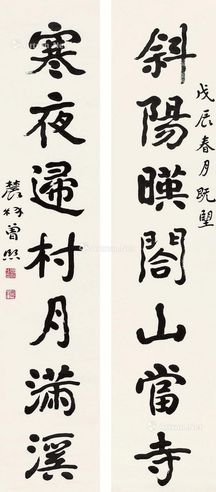 戊辰春月既望
斜陽暎閣山當寺
寒夜歸村月滿溪
農髯曾熙